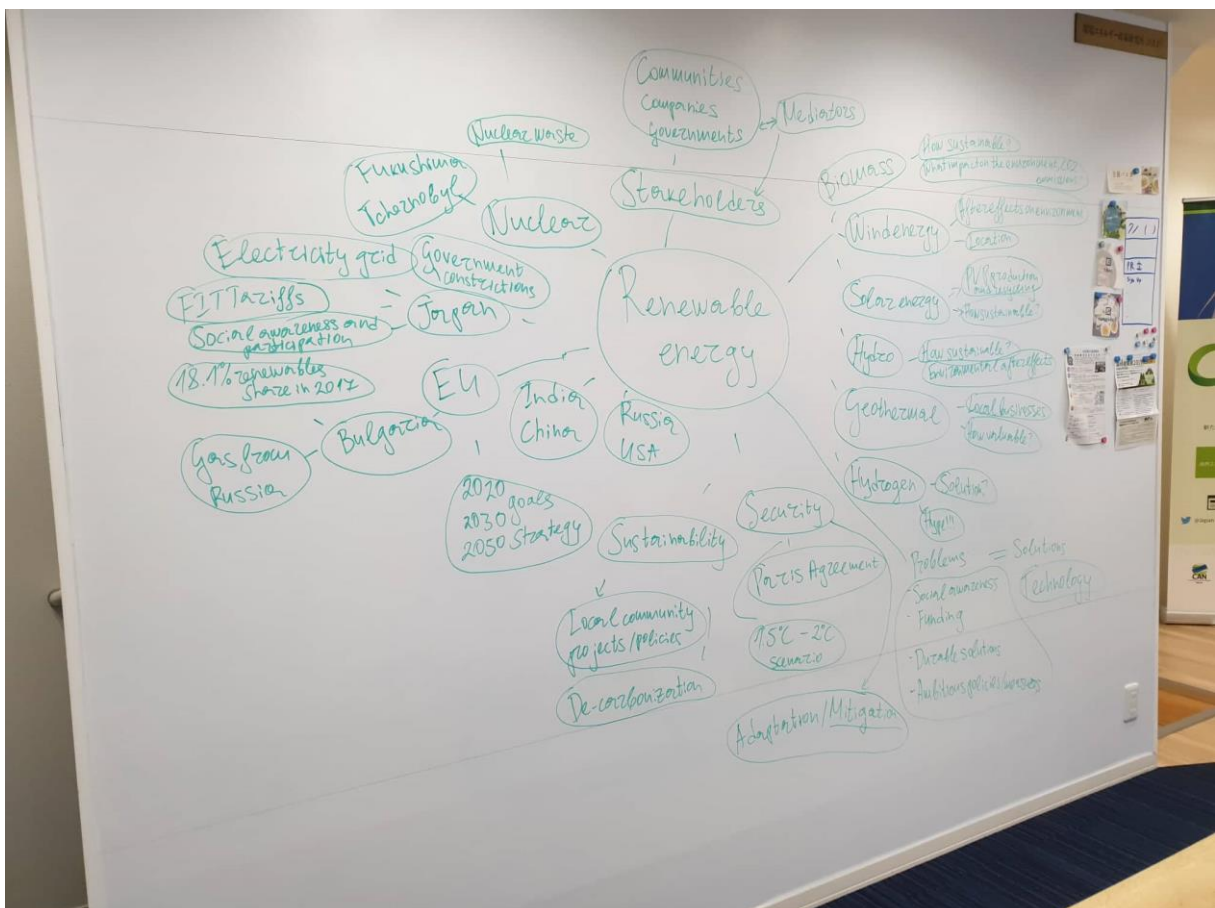 Communities
Companies
Governments
Mediators
Stakeholders
Nuclear waste
Fukushima
Tchernobyl
Nuclear
Electricity grid
Government
constrictions
FIT Tariffs
Japan
Social awareness and
participation
18.1% renewables
share in 2017
EU
Bulgaria
Gas from
Russia
India
China
Russia
USA
Renewable
energy
2020 goals
2030
2050 Strategy
Sustainability
Local community
projects/policies
De-carbonization
Security
Paris Agreement
1.5°C - 2°C
scenario
Adaptation/Mitigation
Biomass
How sustainable?
What impact on the environment/CO2
emissions?
Wind energy
After effects on environment
Location
Solar energy
PV production
and recycling
How sustainable?
Hydro
How sustainable?
Environmental after effects
Geothermal
Local businesses
How valuable?
Hydrogen
Solution?
Hype!!!
Problems = Solutions
- Social awareness
- Funding
- Durable solutions
- Ambitious policies/
Technology
CAN